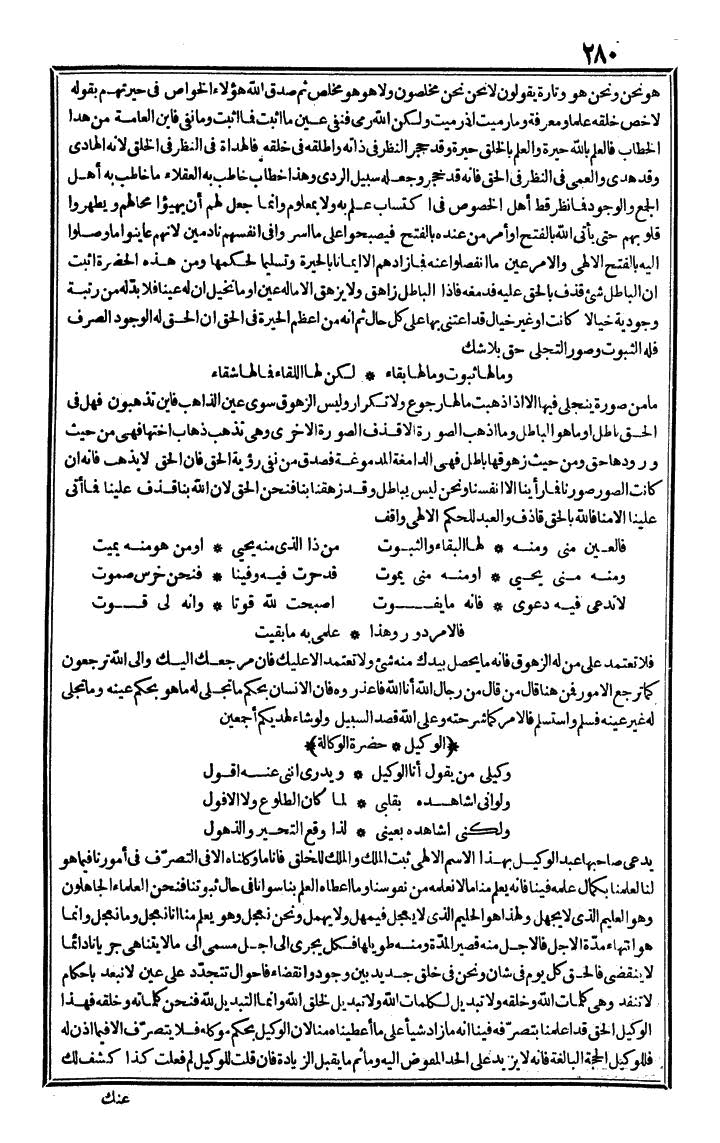 ٢٨٠
هو نحن ونحن هو وتارة يقولون لا نحن نحن مخلصون ولا هو هو مخلص ثم صدق الله هؤلاء الخواص فى حيرتهم بقوله
لاخص خلقه علما ومعرفة وما رميت اذ رميت ولكن الله رمى فنفى عين ما اثبت فما اثبت وما نفى فاين العامة من هذا
الخطاب فالعلم بالله حيرة والعلم بالخلق حيرة وقد حجر النظر فى ذاته واطلقه فى خلقه فالهداة فى النظر فى الخلق لانه الهادى
وقد هدى والعمى فى النظر فى الحق فانه قد حجر وجعله سبيل الردى وهذا خطاب خاطب به العقلاء ما خاطب به أهل
الجمع والوجود فما نظر قط أهل الخصوص فى اكتساب علم به ولا بمعلوم وانما جعل لهم أن يهيؤا محالهم ويطهروا
قلوبهم حتى يأتى الله بالفتح اوأمر من عنده بالفتح فيصبحوا على ما اسروا فى انفسهم نادمين لانهم عاينوا ما وصلوا
اليه بالفتح الالهى والامر عين ما انفصلوا عنه فما زادهم الا ايمانا بالحيرة وتسليما لحكمها ومن هذه الحضرة اثبت
ان الباطل شئ قذف بالحق عليه فدمغه فاذا الباطل زاهق ولا يزهق الا ماله عين اوما تخيل ان له عينا فلا بدله من رتبة
وجودية خيالا كانت اوغير خيال قد اعتنى بها على كل حال ثم انه من اعظم الحيرة فى الحق ان الحق له الوجود الصرف
فله الثبوت وصور التجلى حق بلاشك
وما لها ثبوت وما لها بقاء * لكن لها اللقاء فما لها شقاء
ما من صورة ينجلى فيها الا اذا ذهبت ما لها رجوع ولا تكرار وليس الزهوق سوى عين الذاهب فاين تذهبون فهل فى
الحق باطل اوما هو الباطل وما اذهب الصورة الا قذف الصورة الاخرى وهى تذهب ذهاب اختها فهى من حيث
ورودها حق ومن حيث زهوقها باطل فهى الدامغة المدموغة فصدق من نفى رؤية الحق فان الحق لا يذهب فانه ان
كانت الصور صورنا فما رأينا الا انفسنا ونحن ليس بباطل وقد زهقنا بنا فنحن الحق لان الله بنا قذف علينا فما أتى
علينا الا منا فالله بالحق قاذف والعبد للحكم الالهى واقف
فالعين منى ومنه * لها البقاء والثبوت من ذا الذى منه يحيى * اومن هو منه يميت
ومنه منى يحيى * اومنه منى يموت قد حرت فيه وفينا * فنحن خرس صموت
لا ندعى فيه دعوى * فانه ما يفوت اصبحت لله قوتا * وانه لى قوت
فالامر دور وهذا * علمى به ما بقيت
فلا تعتمد على من له الزهوق فانه ما يحصل بيدك منه شئ ولا تعتمد الا عليك فان مرجعك اليك والى الله ترجعون
كما ترجع الامور فمن هنا قال من قال من رجال الله أنا الله فاعذروه فان الانسان بحكم ما تجلى له ما هو بحكم عينه وما تجلى
له غير عينه فسلم واستسلم فالامر كما شرحته وعلى الله قصد السبيل ولوشاء لهديكم أجمعين
﴿الوكيل * حضرة الوكالة﴾
وكيلى من يقول أنا الوكيل * ويدرى اننى عنه اقول
ولوانى اشاهده بقلبى * لما كان الطلوع ولا الافول
ولكنى اشاهده بعينى * لذا وقع التحير والذهول
يدعى صاحبها عبد الوكيل بهذا الاسم الالهى ثبت الملك والملك للخلق فانا ما وكلناه الا فى التصرف فى أمورنا فيما هو
لنا لعلمنا بكمال علمه فينا فانه يعلم منا ما لا نعلمه من نفوسنا وما اعطاه العلم بنا سوانا فى حال ثبوتنا فنحن العلماء الجاهلون
وهو العليم الذى لا يجهل ولهذا هو الحليم الذى لا يعجل فيمهل ولا يهمل ونحن نعجل وهو يعلم منا انا نعجل وما نعجل وانما
هو انتهاء مدة الاجل فالاجل منه قصير المدة ومنه طويلها فكل يجرى الى اجل مسمى الى ما لا يتناهى جريا نا دائما
لا ينقضى فالحق كل يوم فى شان ونحن فى خلق جديد بين وجود وانقضاء فاحوال تتجدد على عين لا تبعد باحكام
لا تنفد وهى كلمات الله وخلقه ولا تبديل لكلمات الله ولا تبديل لخلق الله وانما التبديل لله فنحن كلماته وخلقه فهذا
الوكيل الحق قد اعلمنا بتصرفه فينا انه ما زاد شيأ على ما أعطيناه منا لان الوكيل بحكم موكله فلا يتصرف الا فيما اذن له
فللوكيل الحجة البالغة فانه لا يزيد على الحد المفوض اليه وما ثم ما يقبل الزيادة فان قلت للوكيل لم فعلت كذا كشف لك
عنك